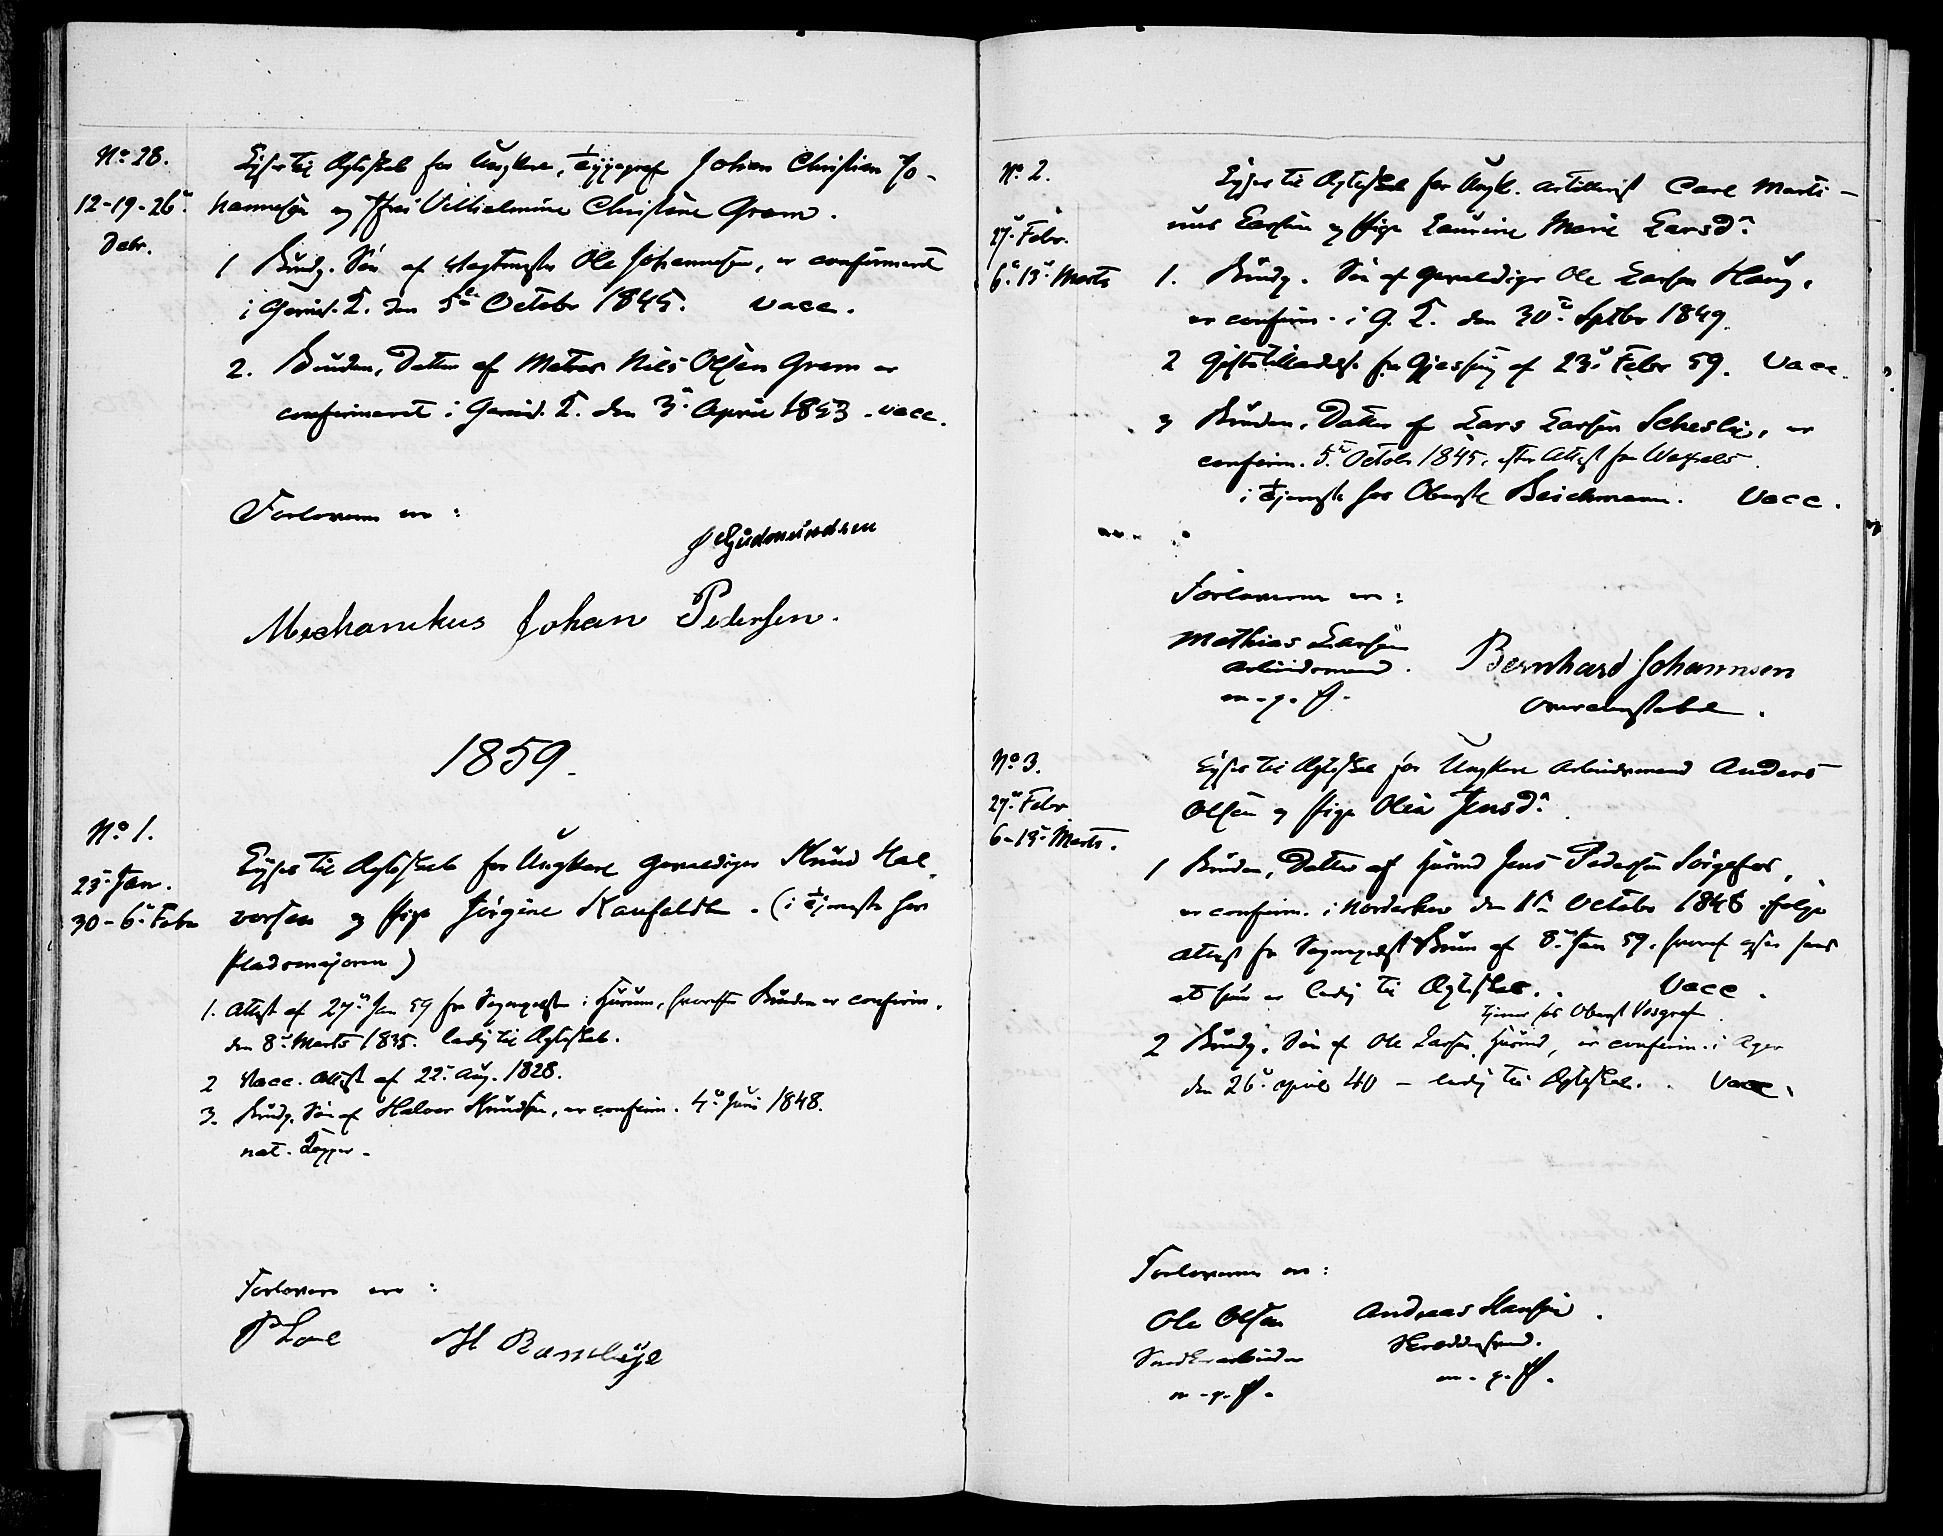 No 28.
12-19-26
Decbr.
Lyses til Ægteskab for Ungkarl, Typograf Johan Christian Jo-
hannesen og Pige Vilhelmine Christine Gram.
1 Brudg. Søn af Vagtmester Ole Johannesen, er confirmeret
i Garnis. X. den 5te October 1845. vacc.
2. Bruden, Datter af Matros Nils Olsen Gram er
confirmeret i Garnis. X. den 3 April 1853 - vacc.
Forloverne ere:
Gudmundsen
Mechanikus Johan Pedersen.
1859.
No 1.
23 Jan.
30-6 Febr
Lyses til Ægteskab for Ungkarl Gevaldiger Knud Hal-
vorsen og Pige Jørgine Kaufeldt. (i Tjeneste hos
Pladsmajoren)
1. Attest af 27 Jan 59 fra Sognepræsten i Hurum, hvorefter Bruden er confirm.
den 8 Marts 1835. ledig til Ægteskab.
2 Vacc. Attest af 22 Aug. 1828.
3. Brudg. Søn af Halvor Knudsen, er confirm. 4 Juni 1848.
nat. Kopper.
Forlovere ere:
P Lone H
No 2.
27 Febr.
6-13 Marts
Lyses til Ægteskab for Ungk. Artillerist Carl Marti-
nus Larsen og Pige Laurine Marie Larsd.
1. Brudg. Søn af Gevaldiger Ole Larsen Haug,
er confirm. i G. X. den 30 Septbr 1849.
2 Giftetilladelse fra Gjessing af 23 Febr 59. Vacc.
3 Bruden, Datter af Lars Larsen, er
confirm. 5 Octob. 1845, efter Attest fra Wexels.
i Tjeneste hos Oberstl Beichmann. Vacc.
Forloverne ere:
Mathias Larsen Bernhard Johannsen
Arbeidsmand.
m. p. P.
No 3.
27 Febr
6-13 Marts.
Lyses til Ægteskab for Ungkarl Arbeidsmand Anders
Olsen og Pige Olea Jensd.
1 Bruden, Datter af Husmd Jens Pedersen,
er confirm. i Norderhov den 1 October 1848 ifølge
Attest fra Sognepræst Bruun af 8 Jan 59. hvoraf
at hun er ledig til Ægteskab. Vacc.
tjener hos Oberst Vosgraf.
2 Brudg. Søn af Ole Larsen, Husmd, er confirm. i Ager
den 26 April 40 - ledig til Ægteskab. Vacc.
Forloverne ere:
Ole Olsen Andreas Hansen.
Snedkerarbeider Skreddersvend.
m. p. P. m. p. P.